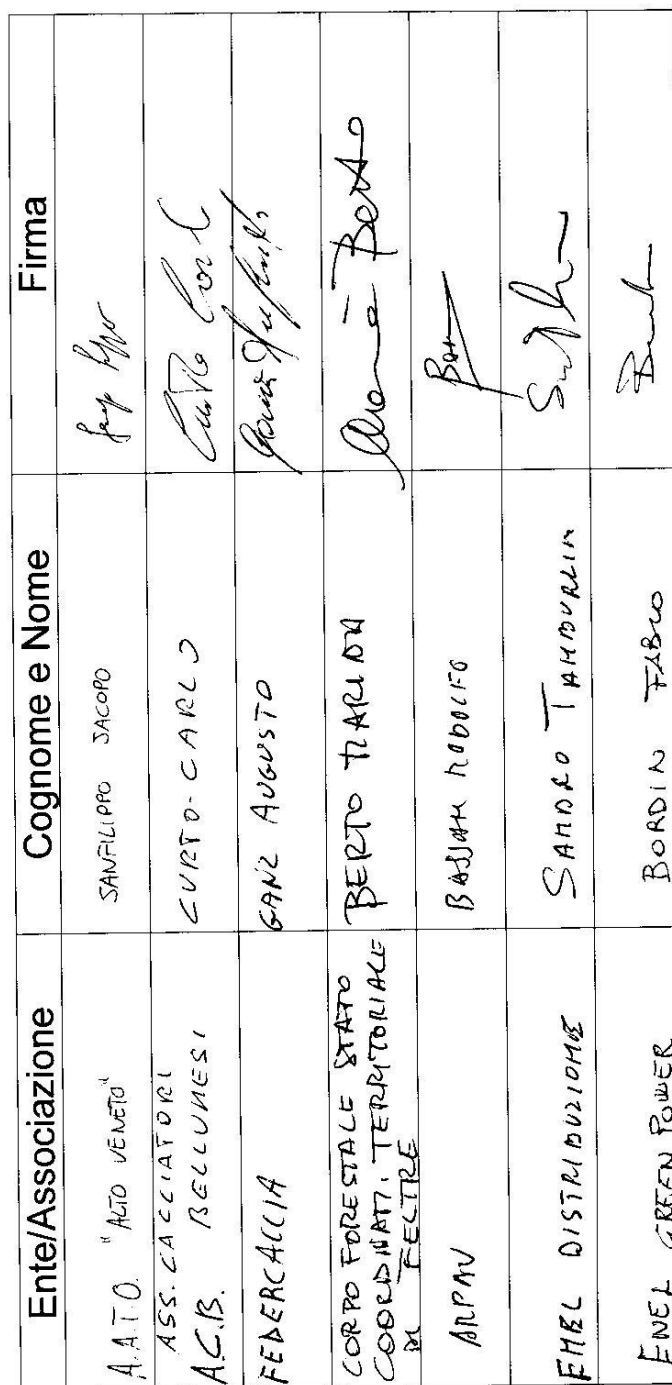 Ente/Associazione Cognome e Nome Firma
A.A.T.O. "ALTO VENETO" SANFILIPPO JACOPO
ASS. CACCIATORI
A.C.B. BELLUNESI CURTO-CARLO Curto Carlo
FEDERCACCIA GANZ AUGUSTO
CORPO FORESTALE STATO
COORDINATI. TERRITORIALE
DI FELTRE BERTO MARINA Berto
ARPAV BASSAN RODOLFO
ENEL DISTRIBUZIONE SANDRO TAMBURLIN
ENEL GREEN POWER BORDIN FABIO